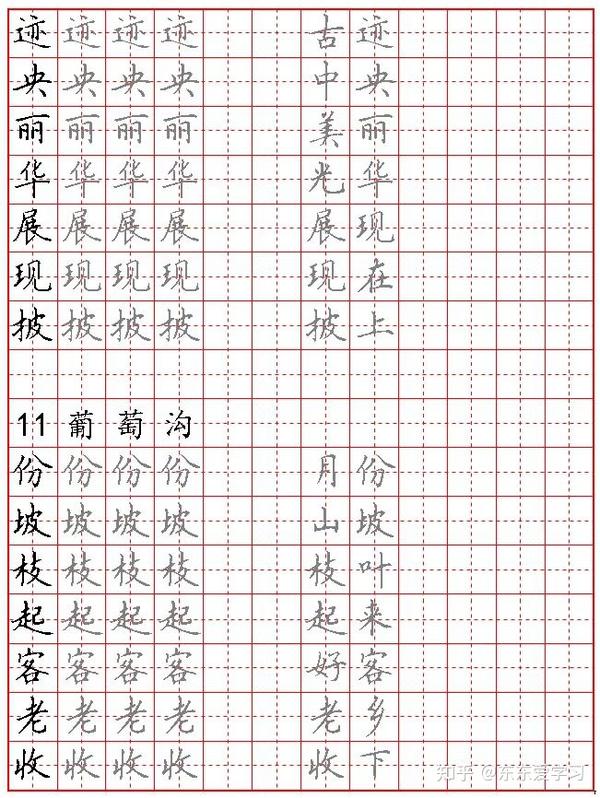 迹迹迹迹 古迹
央央央央 中央
丽丽丽丽 美丽
华华华华 光华
展展展展 展现
现现现现 现在
披披披披 披上
11 葡萄沟
份份份份 月份
坡坡坡坡 山坡
枝枝枝枝 枝叶
起起起起 起来
客客客客 好客
老老老老 老乡
收收收收 收下
知乎 @东东爱学习